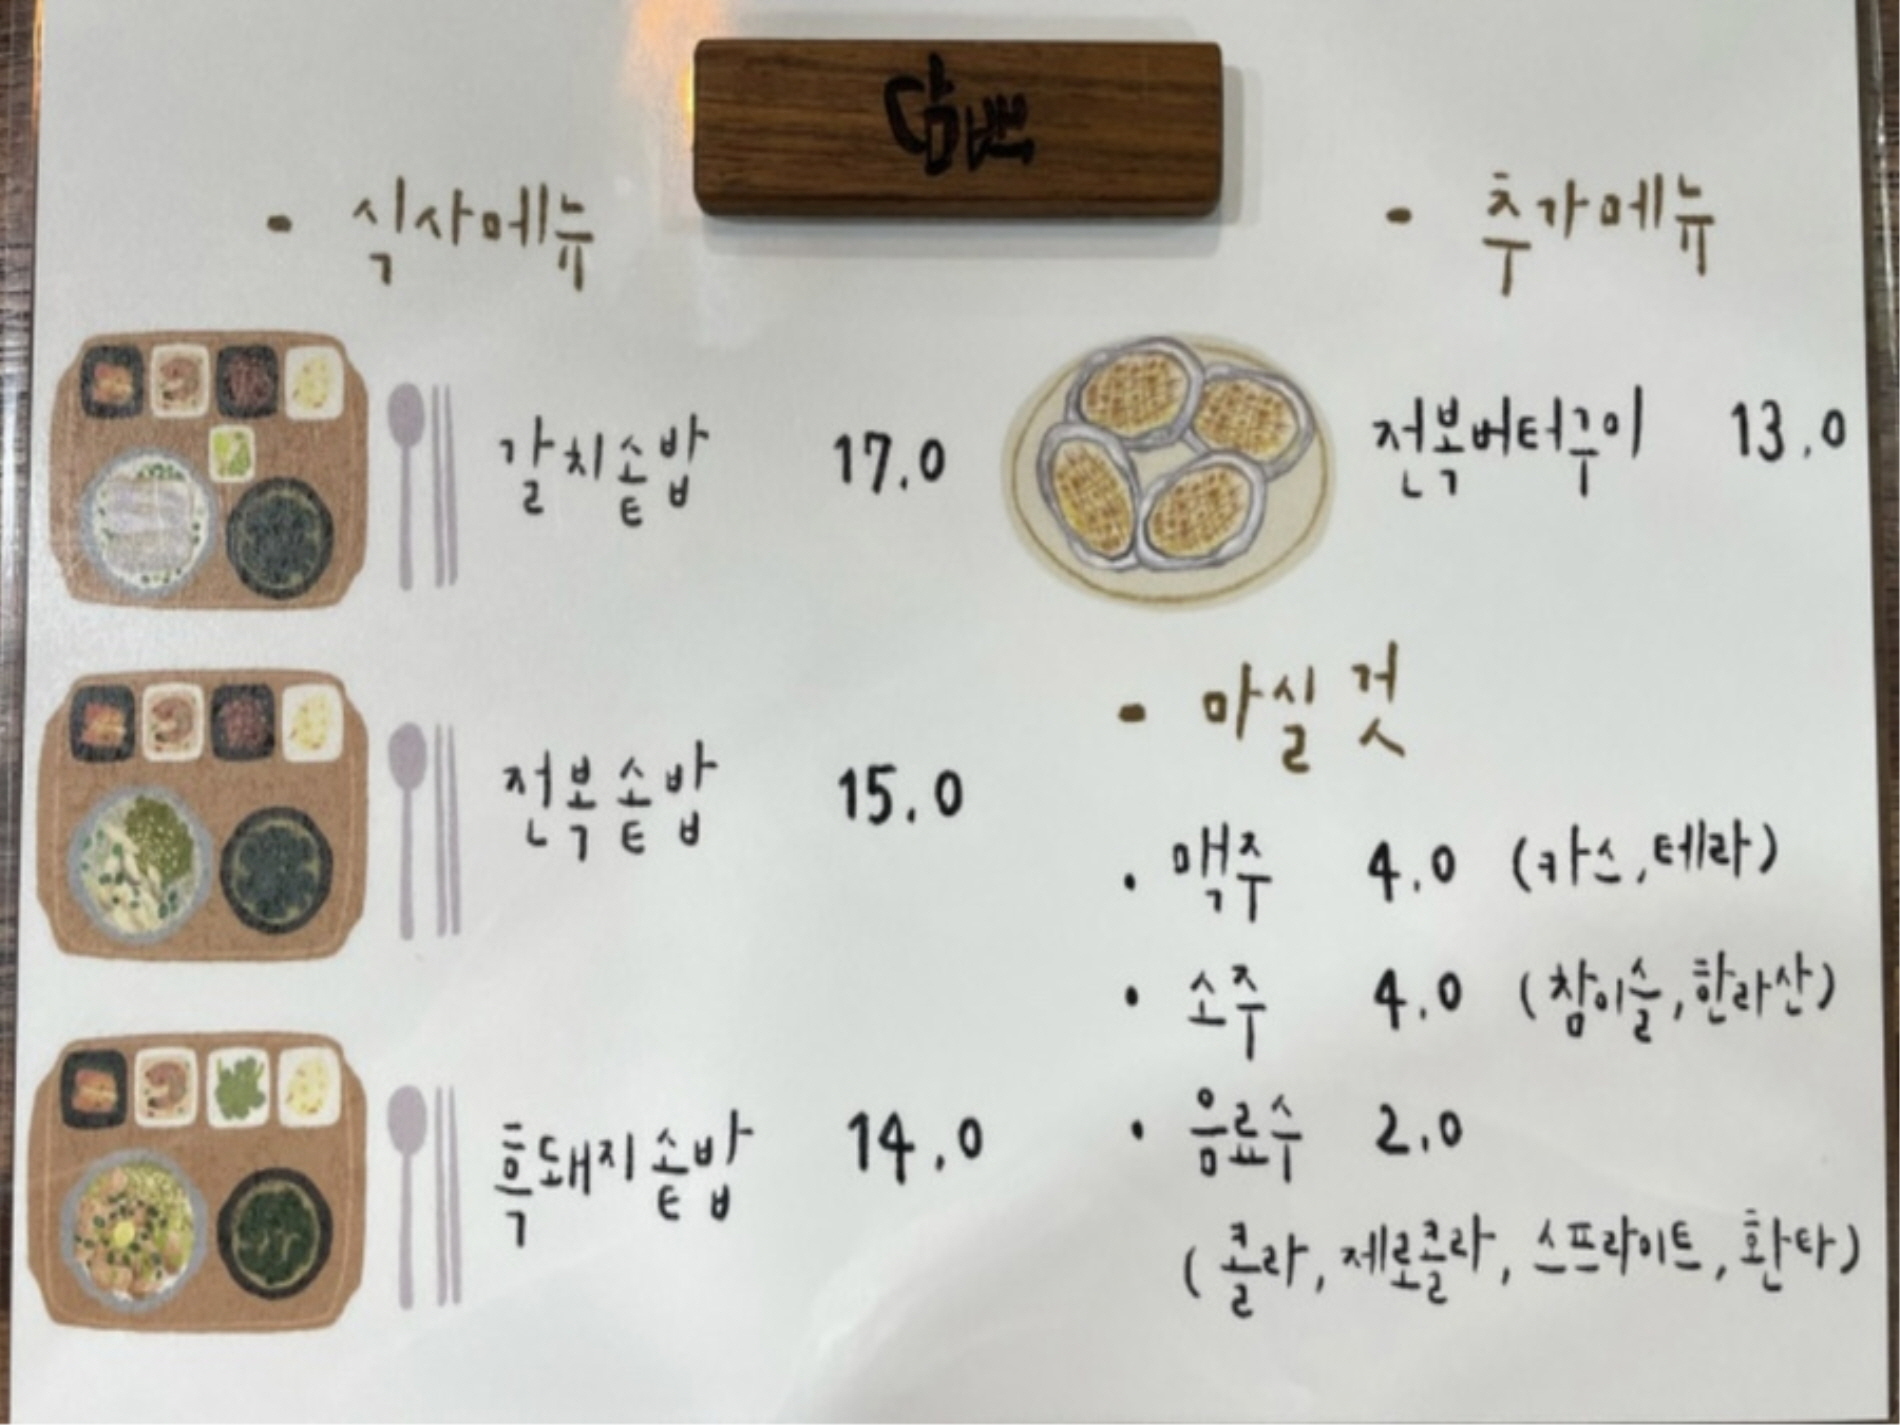 담뿍
- 식사메뉴
갈치솥밥 17.0
전복솥밥 15.0
흑돼지솥밥 14.0
- 추가메뉴
전복버터구이 13.0
- 마실 것
· 맥주 4.0 (카스, 테라)
· 소주 4.0 (참이슬, 한라산)
· 음료수 2.0
(콜라, 제로콜라, 스프라이트, 환타)